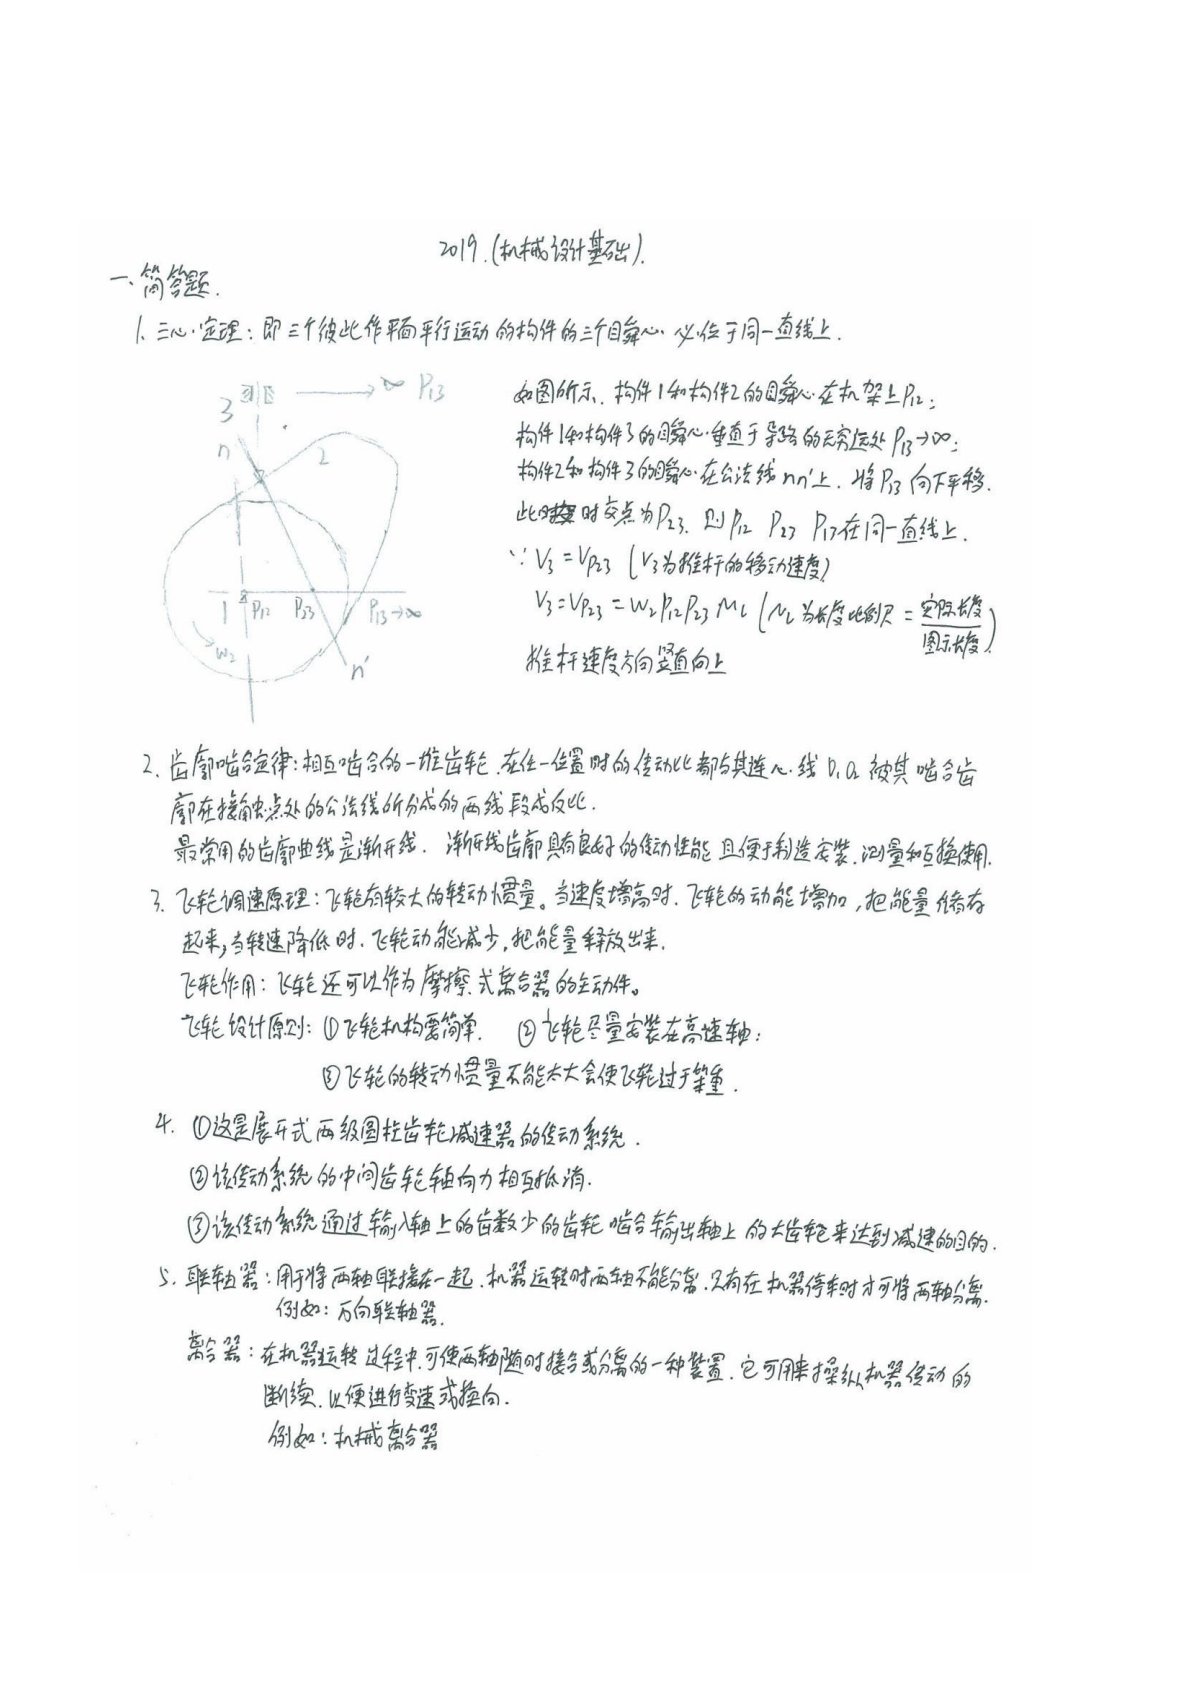 2019.(机械设计基础).
一、简答题.
1. 三心定理：即三个彼此作平面平行运动的构件的三个瞬心必位于同一直线上.
3 ∞ P13
n 2
1 P12 P23 P13→∞
w2 n'
如图所示、构件1和构件2的瞬心在机架上P12；
构件1和构件3的瞬心垂直于导路的无穷远处P13→∞；
构件2和构件3的瞬心在公法线nn'上. 将P13向下平移.
此时 时交点为P23. 则P12 P23 P13在同一直线上.
∵ V3=VP23 (V3为推杆的移动速度)
V3=VP23=W2P12P23 ML (ML为长度比例尺=实际长度/图示长度)
推杆速度方向竖直向上
2. 齿廓啮合定律：相互啮合的一堆齿轮.在任一位置时的传动比都与其连心线O1O2被其啮合齿
廓在接触点处的公法线所分成的两线段成反比.
最常用的齿廓曲线是渐开线. 渐开线齿廓具有良好的传动性能且便于制造安装.测量和互换使用.
3. 飞轮调速原理：飞轮有较大的转动惯量。当速度增高时.飞轮的动能增加，把能量储存
起来,当转速降低时.飞轮动能减少,把能量释放出来.
飞轮作用：飞轮还可以作为摩擦式离合器的主动件。
飞轮设计原则：①飞轮机构要简单. ②飞轮尽量安装在高速轴；
③飞轮的转动惯量不能太大会使飞轮过于笨重.
4. ①这是展开式两级圆柱齿轮减速器的传动系统.
②该传动系统的中间齿轮轴向力相互抵消.
③该传动系统通过输入轴上的齿数少的齿轮啮合输出轴上的大齿轮来达到减速的目的.
5. 联轴器：用于将两轴联接在一起.机器运转时两轴不能分离.只有在机器停车时才可将两轴分离.
例如：万向联轴器.
离合器：在机器运转过程中.可使两轴随时接合或分离的一种装置.它可用来操纵机器传动的
断续.以便进行变速或换向.
例如：机械离合器